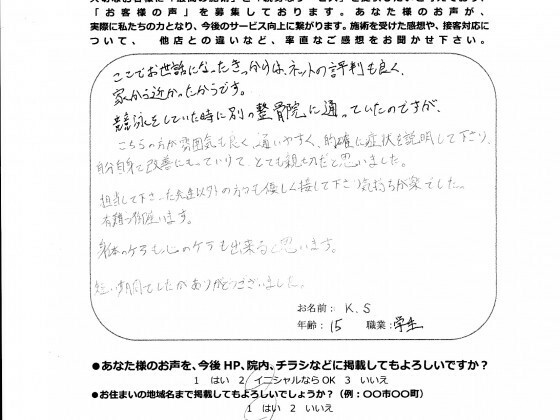 「お客様の声」を募集しております。あなた様のお声が、
実際に私たちの力となり、今後のサービス向上に繋がります。施術を受けた感想や、接客対応に
ついて、他店との違いなど、率直なご感想をお聞かせ下さい。
ここでお世話になったきっかけは、ネットの評判も良く、
家から近かったからです。
競泳をしていた時に別の整骨院に通っていたのですが、
こちらの方が雰囲気も良く、通いやすく、的確に症状を説明して下さり、
自分自身で改善にもっていけて、とても親切だと思いました。
担当して下さった先生以外の方々も優しく接して下さり気持ちが楽でした。
有難う御座います。
身体のケアも心のケアも出来ると思います。
短い期間でしたがありがとうございました。
お名前: K.S
年齢: 15 職業: 学生
●あなた様のお声を、今後HP、院内、チラシなどに掲載してもよろしいですか?
1 はい 2 イニシャルならOK 3 いいえ
●お住まいの地域名まで掲載してもよろしいでしょうか?(例:〇〇市〇〇町)
1 はい 2 いいえ